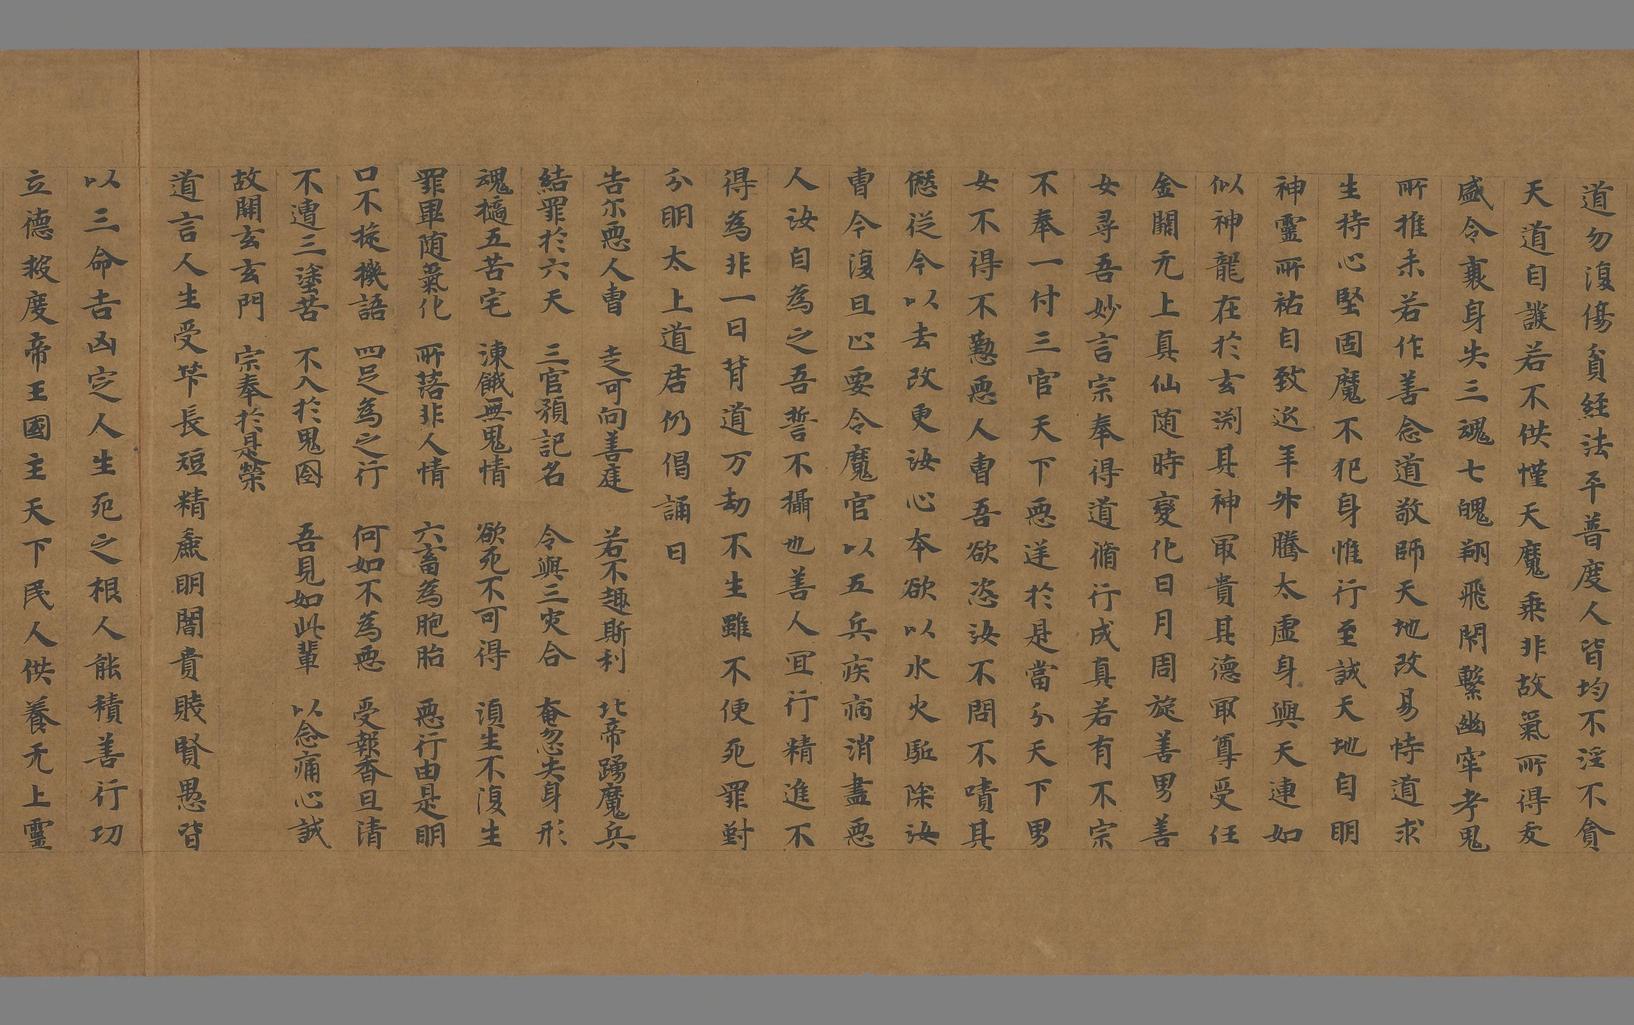 道勿復傷貪經法平普度人皆均不淫不貪
天道自護若不供慬天魔乗非故氣所得友
盛令衰身失三魂七魄翔飛閇繫幽牢考鬼
所推未若作善念道敬師天地改易恃道求
生持心堅固魔不犯身惟行至誠天地自明
神靈所祐自致返年外騰太虛身與天連如
似神龍在於玄渕其神冣貴其德冣尊受任
金闕无上真仙随時變化日月周旋善男善
女尋吾妙言宗奉得道脩行成真若有不宗
不奉一付三官天下悪逆於是當分天下男
女不得不懃悪人曹吾欲恣汝不問不嘖其
𠍴従今以去改更汝心夲欲以水火駈除汝
曹今復且心要令魔官以五兵疾病消盡悪
人汝自為之吾誓不攝也善人冝行精進不
得為非一日背道万劫不生雖不便死罪對
分明太上道君仍倡誦曰
告尓悪人曹 走可向善庭 若不趣斯利 北帝踴魔兵
結罪於六天 三官預記名 令與三灾合 奄忽失身形
魂撟五苦宅 涷餓無鬼情 欲死不可得 湏生不復生
罪畢随氣化 所落非人情 六畜為胞胎 悪行由是明
口不㨀機語 四足為之行 何如不為悪 受報香且清
不遭三塗苦 不入於鬼囹 吾見如此輩 以念痛心誠
故開玄玄門 宗奉於是榮
道言人生受笇長短精麁明闇貴賤賢愚皆
以三命吉凶定人生死之根人能積善行功
立德救度帝王國主天下民人供養无上靈